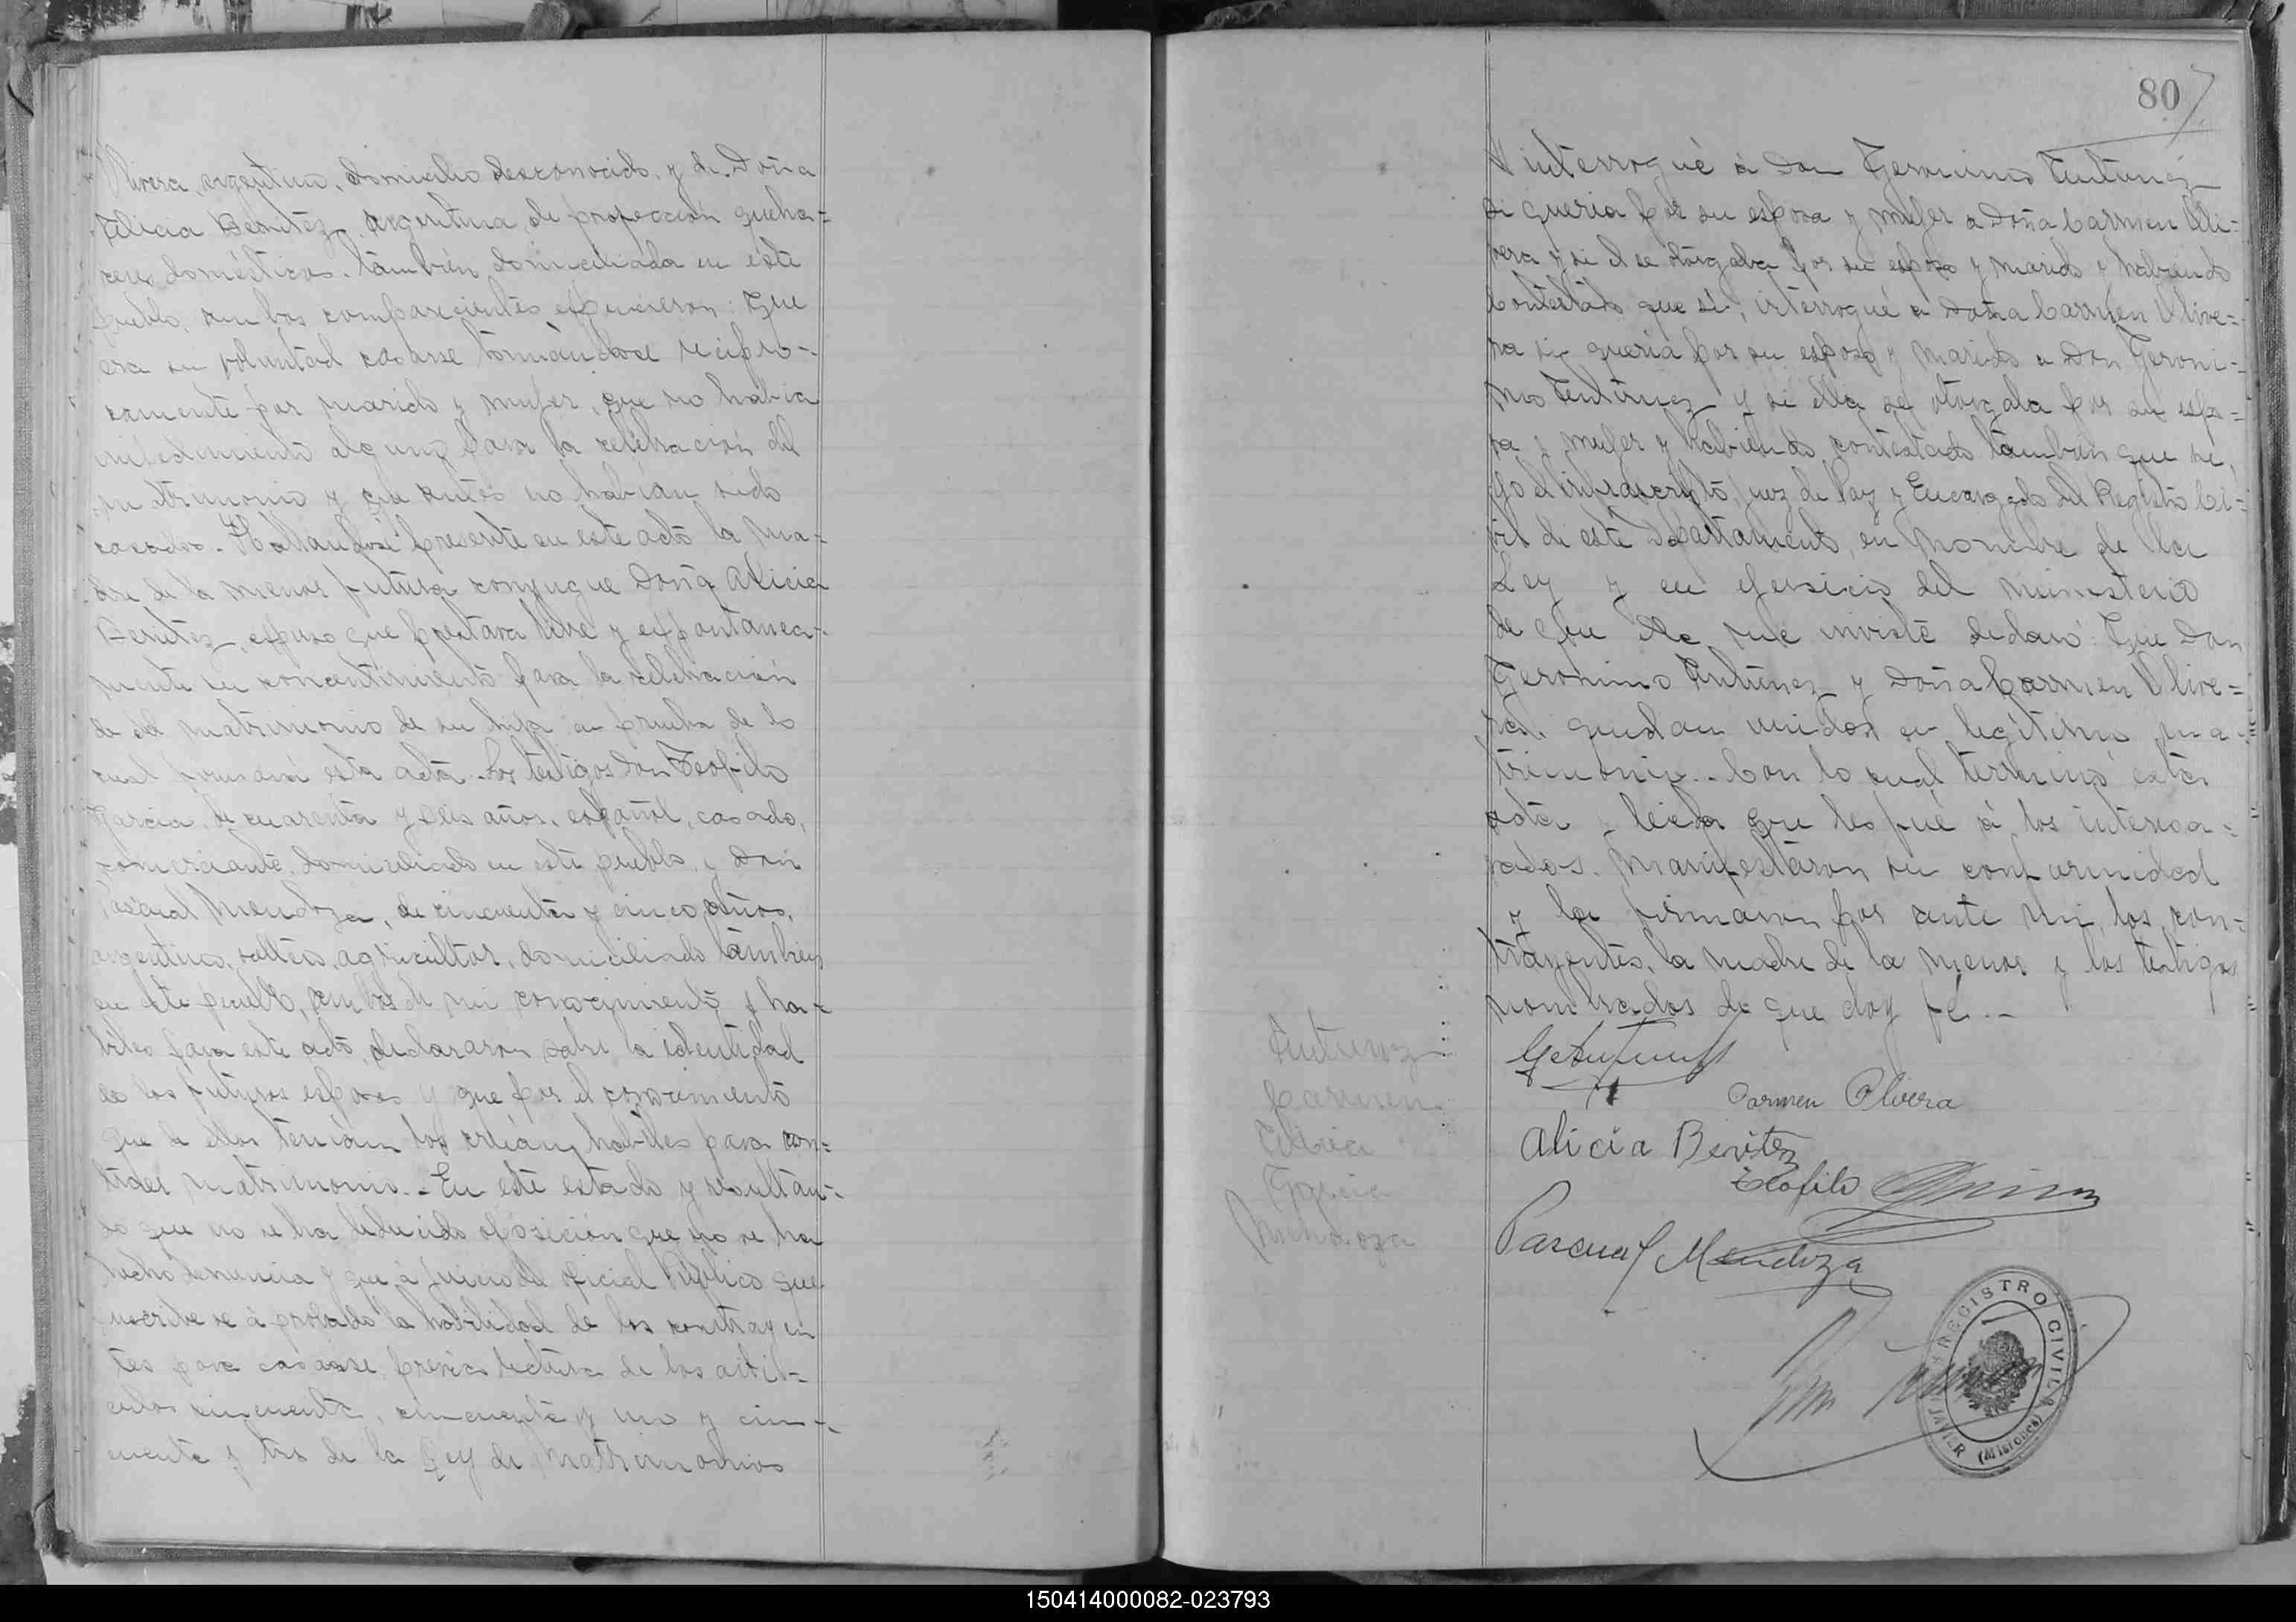 Olivera, argentino, domicilio desconocido, y de Doña
Alicia Benitez, argentina, de profección queha=
ceres domésticos, también domiciliada en este
pueblo, ambos comparecientes expusieron: Que
era su voluntad casarse tomándose recipro-
camente por marido y mujer, que no habia
impedimiento alguno para la celebracion del
matrimonio y que antes no habían sido
casados.- Hallandose presente en este acto la ma-
dre de la menor futura conyugue Doña Alicia
Benitez, expuso que prestava libre y espontanea-
mente su concentimiento para la celebracion
de del matrimonio de su hija en prueba de lo
cual firmará esta acta. Los testigos Don Teofilo
Garcia, de cuarenta y seis años, español, casado,
comerciante, domiciliado en este pueblo, y Don
Pascual Mendoza, de cincuenta y cinco años,
argentino, soltero, agricultor, domiciliado tambien
en este pueblo, ambos de mi conocimiento y ha-
biles para este acto, declararon sobre la identidad
de los futuros esposos y que por el conocimiento
que de ellos tenían los creían habiles para con=
traer matrimonio.- En este estado y resultan-
do que no se ha deducido oposición que no se ha
hecho denuncia y que á juicio del oficial Publico que
suscribe se á probado la habilidad de los contrayen
tes para casarse, previa lectura de los arti-
culos cincuenta, cincuenta y uno y cin-
cuenta y tres de la Ley de Matrimonios
80
interrogué á Don Geronimo Antunez
si queria por su esposa y mujer a Doña Carmen Oli=
vera y si el se otorgaba por su esposo y marido y habiendo
contestado que sí, interrogué a Doña Carmen Olive=
ra si queria por su esposo y marido a Don Geroni=
mo Antunez y si ella se otorgaba por su espo=
sa y mujer y habiendo contestado tambien que si,
yo el infrascripto Juez de Paz y Encargado del Registro Ci=
vil de este Departamento, en nombre de la
Ley y en ejersicio del ministerio
de que ella me inviste declaró: Que Don
Geronimo Antunez y Doña Carmen Olive=
ra, quedan unidos en legítimo ma-
trimonio.- Con lo cual terminó esta
acta y leida que les fué á los interesa=
sados, manifestaron su conformidad
y la firmaron por ante mi, los con=
trayentes, la madre de la menor y los testigos
nombrados de que doy fé.-
Antunez
Carmen
Alicia
Garcia
Mendoza
G Antunez
Carmen Olivera
Alicia Benitez
Teofilo Garcia
Pascual Mendoza
REGISTRO CIVIL
JAVIER (Misiones)
150414000082-023793